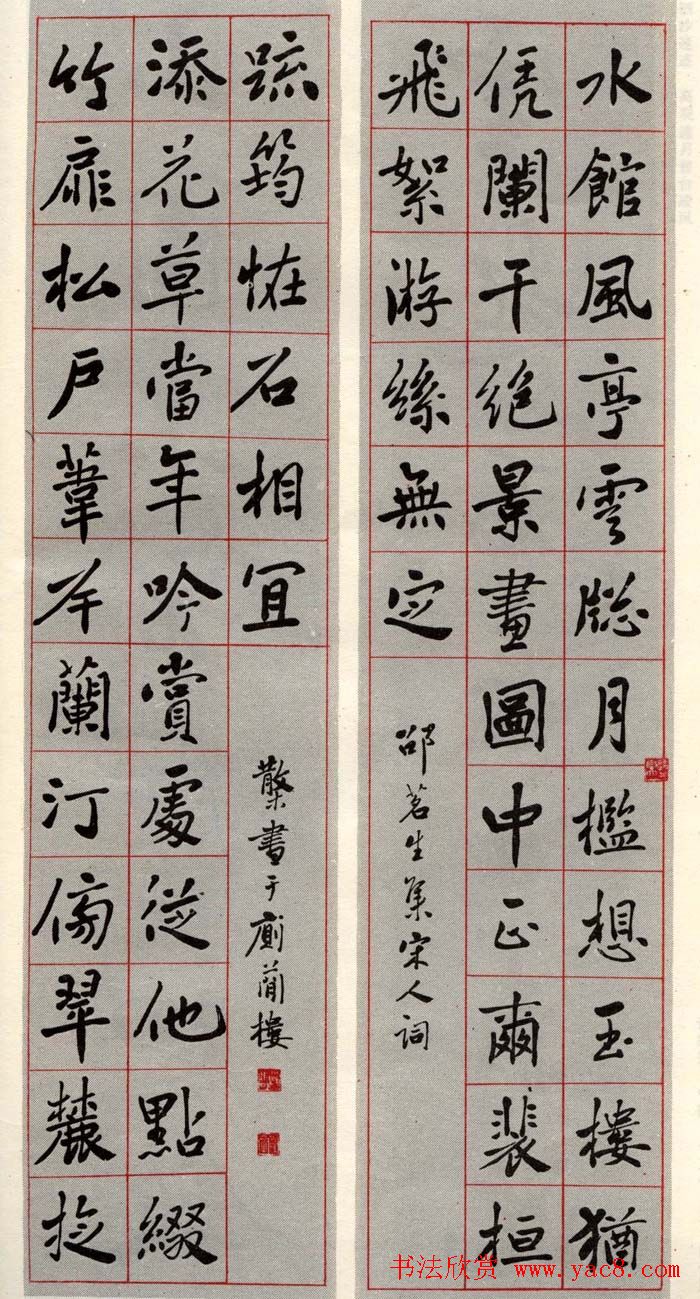 水館風亭雲牕月檻想玉樓猶
凭闌干絕景畫圖中正爾裴桓
飛絮游絲無定
邵茗生集宋人詞
竹扉松戶葦岸蘭汀傍翠麓
添花草當年吟賞處從他點綴
疏筠怪石相宜
書于樓
书法欣赏 www.yac8.com